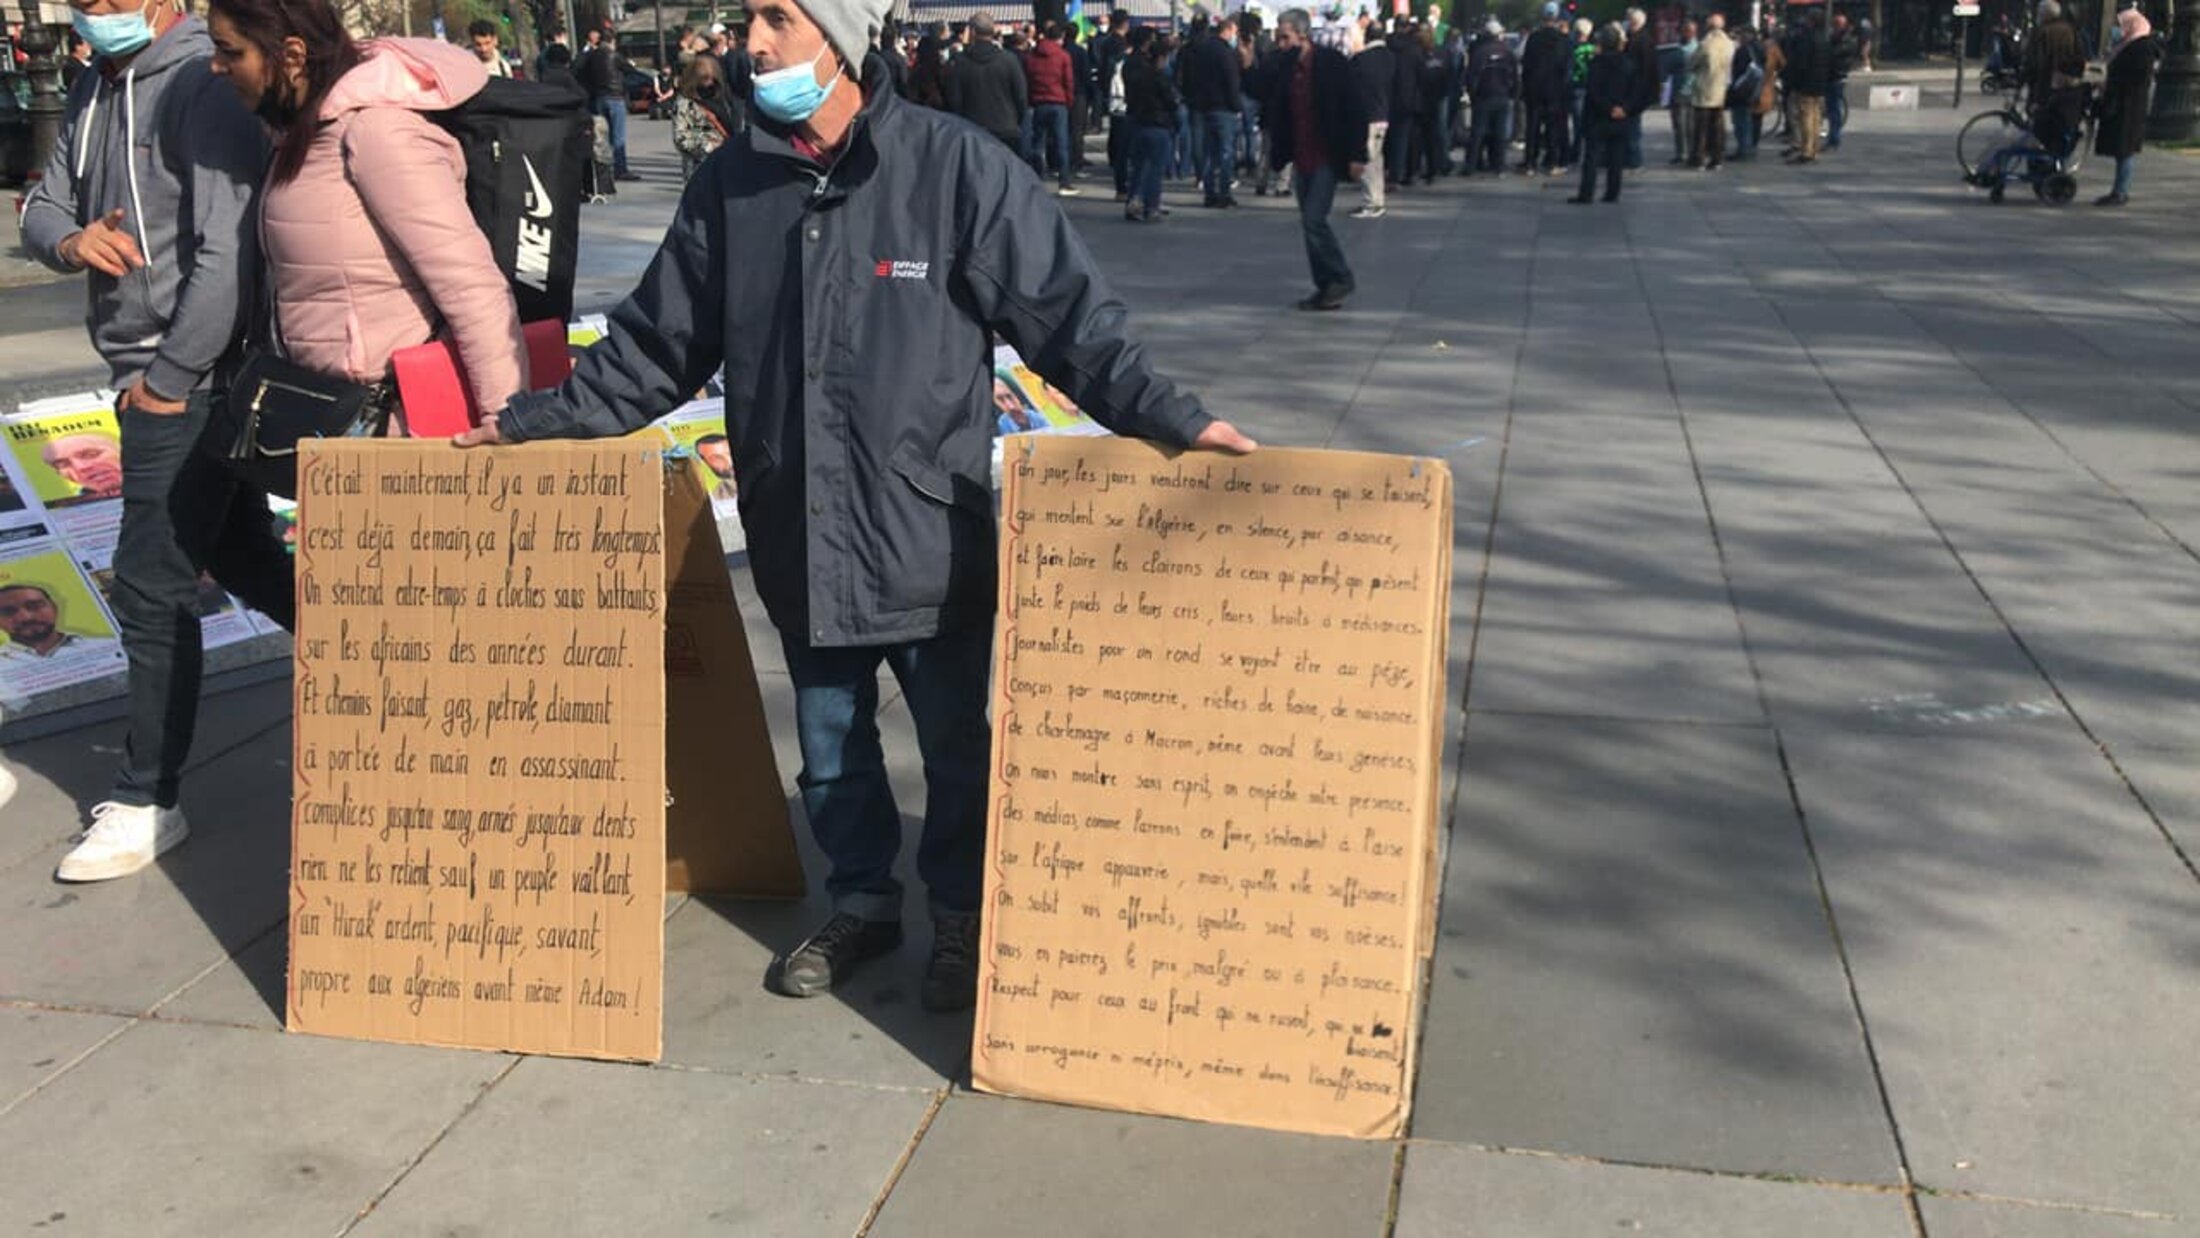 NIKE
EIFFAGE
ÉNERGIE
BENAOUM
C'était maintenant, il y a un instant,
c'est déjà demain, ça fait très longtemps.
On s'entend entre-temps à cloches sans battants,
sur les africains des années durant.
Et chemins faisant, gaz, pétrole, diamant
à portée de main en assassinant.
complices jusqu'au sang, armés jusqu'aux dents
rien ne les retient, sauf un peuple vaillant,
un "Hirak" ardent, pacifique, savant,
propre aux algériens avant même Adam!
Un jour, les jours viendront dire sur ceux qui se taisent,
qui mentent sur l'Algérie, en silence, par aisance,
et faire taire les clairons de ceux qui parlent, qui pèsent
juste le poids de leurs cris, leurs bruits à médisances.
Journalistes pour un rond se voyant être au pèze,
Conçus par maçonnerie, riches de haine, de nuisance.
de charlemagne à Macron, même avant leurs genèses,
on nous montre sans esprit, on empêche notre présence.
des médias, comme larrons en foire, s'entendent à l'aise
sur l'afrique appauvrie, mais, quelle vile suffisance!
On subit vos affronts, ignobles sont vos noèses.
vous en paierez le prix, malgré ou à plaisance.
Respect pour ceux au front qui ne rusent, qui ne
biaisent,
Sans arrogance ni mépris, même dans l'insuffisance.